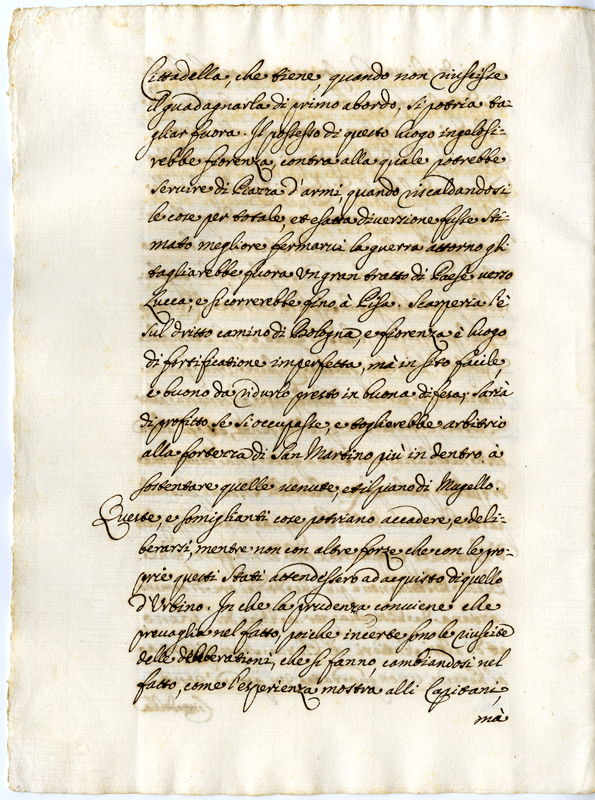 Cittadella, che tiene, quando non riuscisse
il guadagnarla di primo abordo, si potria ta-
gliar fuora. Il possesso di questo luogo ingelosi-
rebbe fiorenza, contra alla quale potrebbe
servire di Piazza d'armi, quando riscaldandosi
le cose per totale, et esatta diversione fusse sti-
mato megliore fermarvi la guerra attorno gli
tagliarebbe fuora Un gran tratto di Paese verso
Lucca, e si correrebbe fino à Pisa. Scarperia l'è
sul dritto camino di Bologna, e fiorenza è luogo
di fortificatione imperfetta, mà in sito facile,
e buono da ridurlo presto in buona difesa, sarià
di profitto se si occupasse, e toglierebbe arbitrio
alla fortezza di San Martino più in dentro à
sostentare quelle venute, et il piano di Mugello.
Queste, e somiglianti cose potriano accadere, e deli-
berarsi, mentre non con altre forze che con le pro-
prie questi Stati attendessero ad acquisto di quello
d'Urbino. In che la prudenza conviene che
prevaglia nel fatto, poiche incerte sono le riuscite
delle deliberationi, che si fanno, cambiandosi nel
fatto, come l'esperienza mostra alli Capitani,
mà